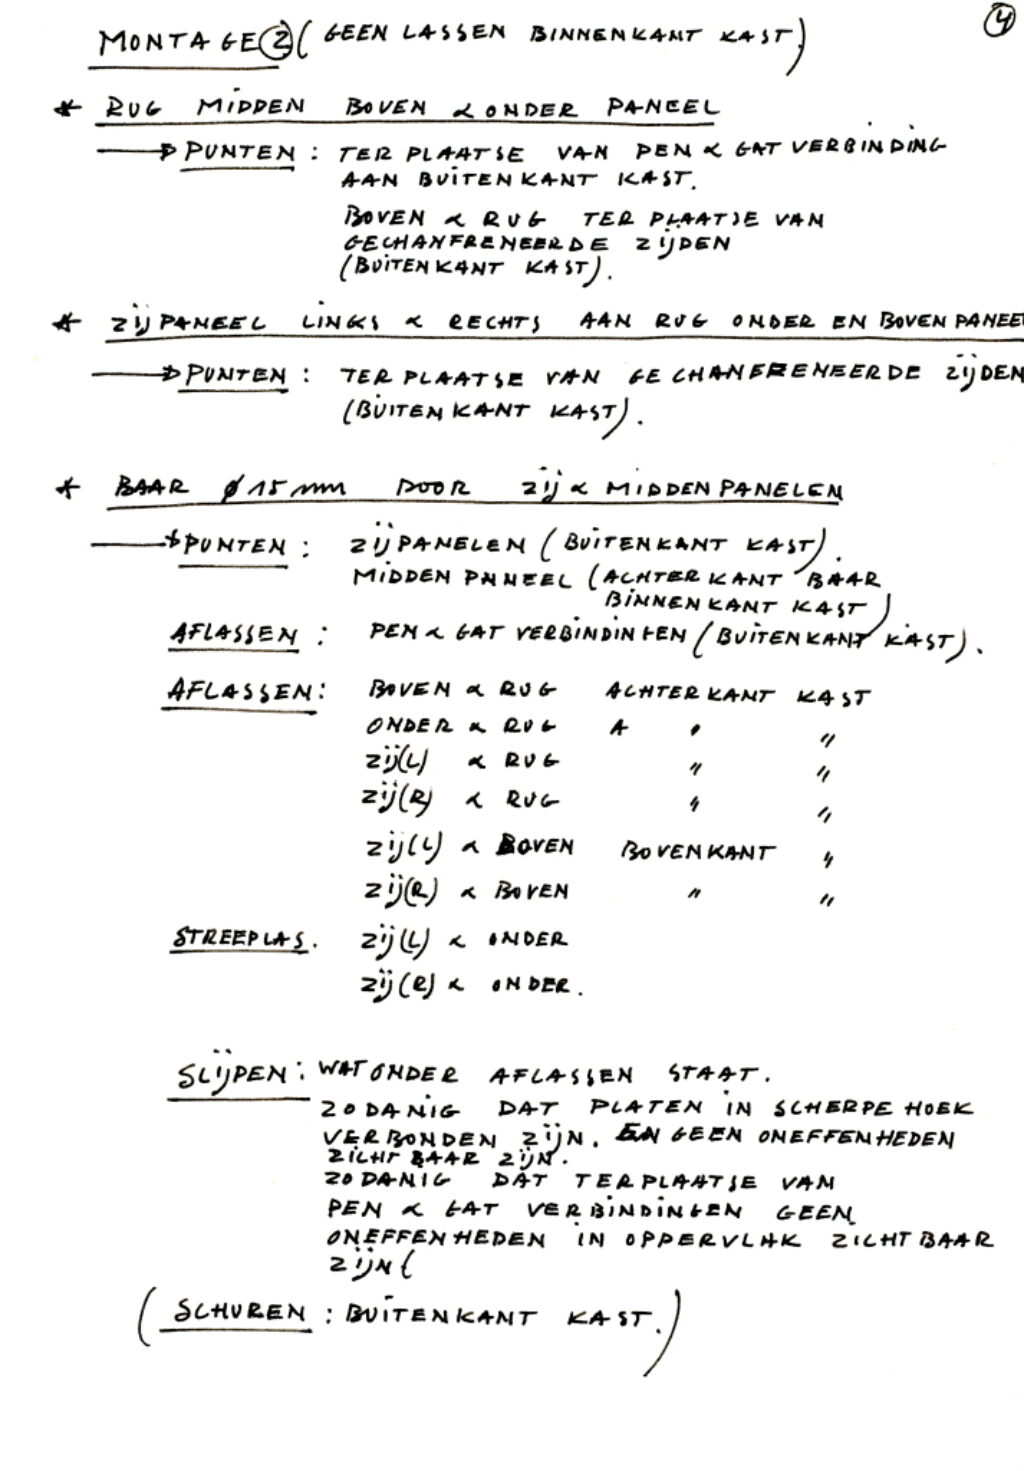 4
MONTAGE 2 (GEEN LASSEN BINNENKANT KAST)
* RUG MIDDEN BOVEN & ONDER PANEEL
→ PUNTEN : TER PLAATSE VAN PEN & GAT VERBINDING
AAN BUITENKANT KAST.
BOVEN & RUG TER PLAATSE VAN
GECHANFRENEERDE ZIJDEN
(BUITENKANT KAST).
* ZIJPANEEL LINKS & RECHTS AAN RUG ONDER EN BOVENPANEE
→ PUNTEN : TER PLAATSE VAN GECHANFRENEERDE ZIJDEN
(BUITENKANT KAST).
* BAAR ø 15 mm DOOR ZIJ & MIDDENPANELEN
→ PUNTEN : ZIJPANELEN (BUITENKANT KAST).
MIDDEN PANEEL (ACHTERKANT BAAR
BINNENKANT KAST)
AFLASSEN : PEN & GAT VERBINDINGEN (BUITENKANT KAST).
AFLASSEN : BOVEN & RUG ACHTERKANT KAST
ONDER & RUG A " "
ZIJ(L) & RUG " "
ZIJ(R) & RUG " "
ZIJ(L) & BOVEN BOVENKANT "
ZIJ(R) & BOVEN " "
STREEPLAS. ZIJ(L) & ONDER
ZIJ(R) & ONDER.
SLIJPEN : WAT ONDER AFLASSEN STAAT.
ZODANIG DAT PLATEN IN SCHERPE HOEK
VERBONDEN ZIJN. EN GEEN ONEFFENHEDEN
ZICHTBAAR ZIJN.
ZODANIG DAT TERPLAATSE VAN
PEN & GAT VERBINDINGEN GEEN
ONEFFENHEDEN IN OPPERVLAK ZICHTBAAR
ZIJN (
(SCHUREN : BUITENKANT KAST.)